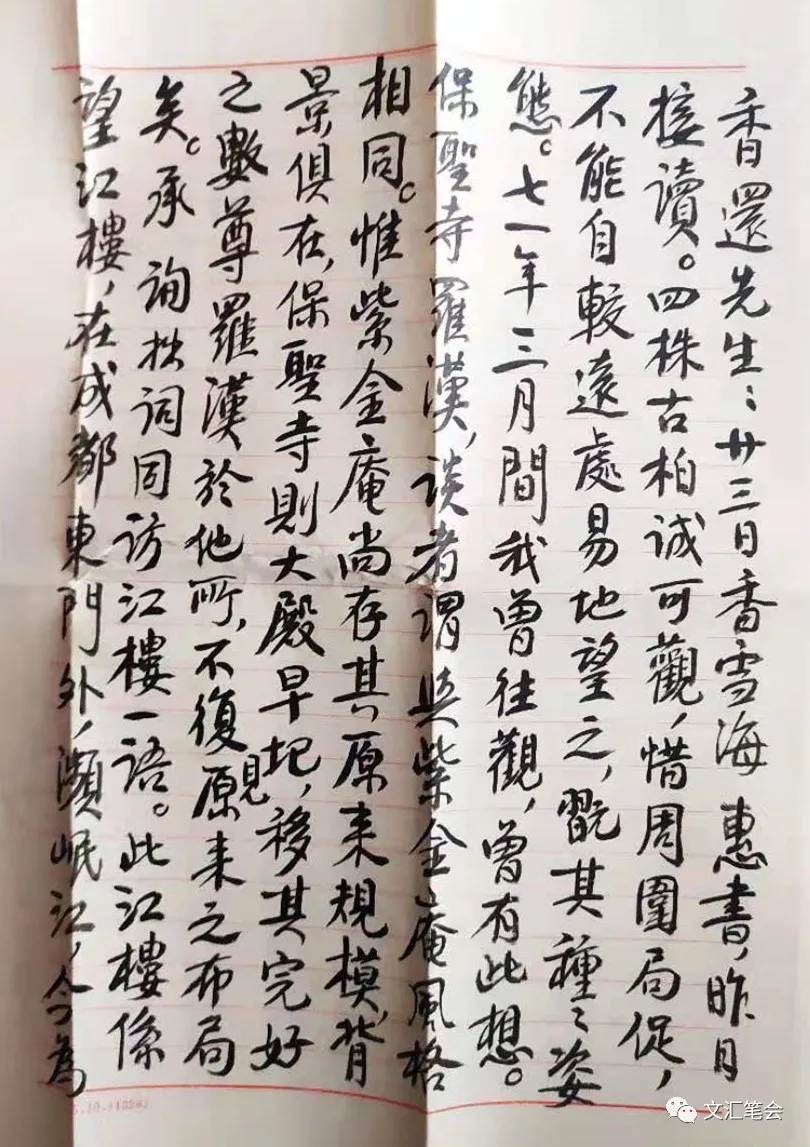 香還先生:廿三日香雪海 惠書,昨日
接讀。四株古柏誠可觀,惜周圍局促,
不能自較遠處易地望之,翫其種々姿
態。七一年三月間我曾往觀,曾有此想。
保聖寺羅漢,談者謂與紫金庵風格
相同。惟紫金庵尚存其原來規模,背
景俱在,保聖寺則大殿早圮,移其完好
之數尊羅漢於他所,不復見原來之布局
矣。承 詢拙詞同訪江樓一語。此江樓係
望江樓,在成都東門外,瀕岷江,今為
文汇笔会